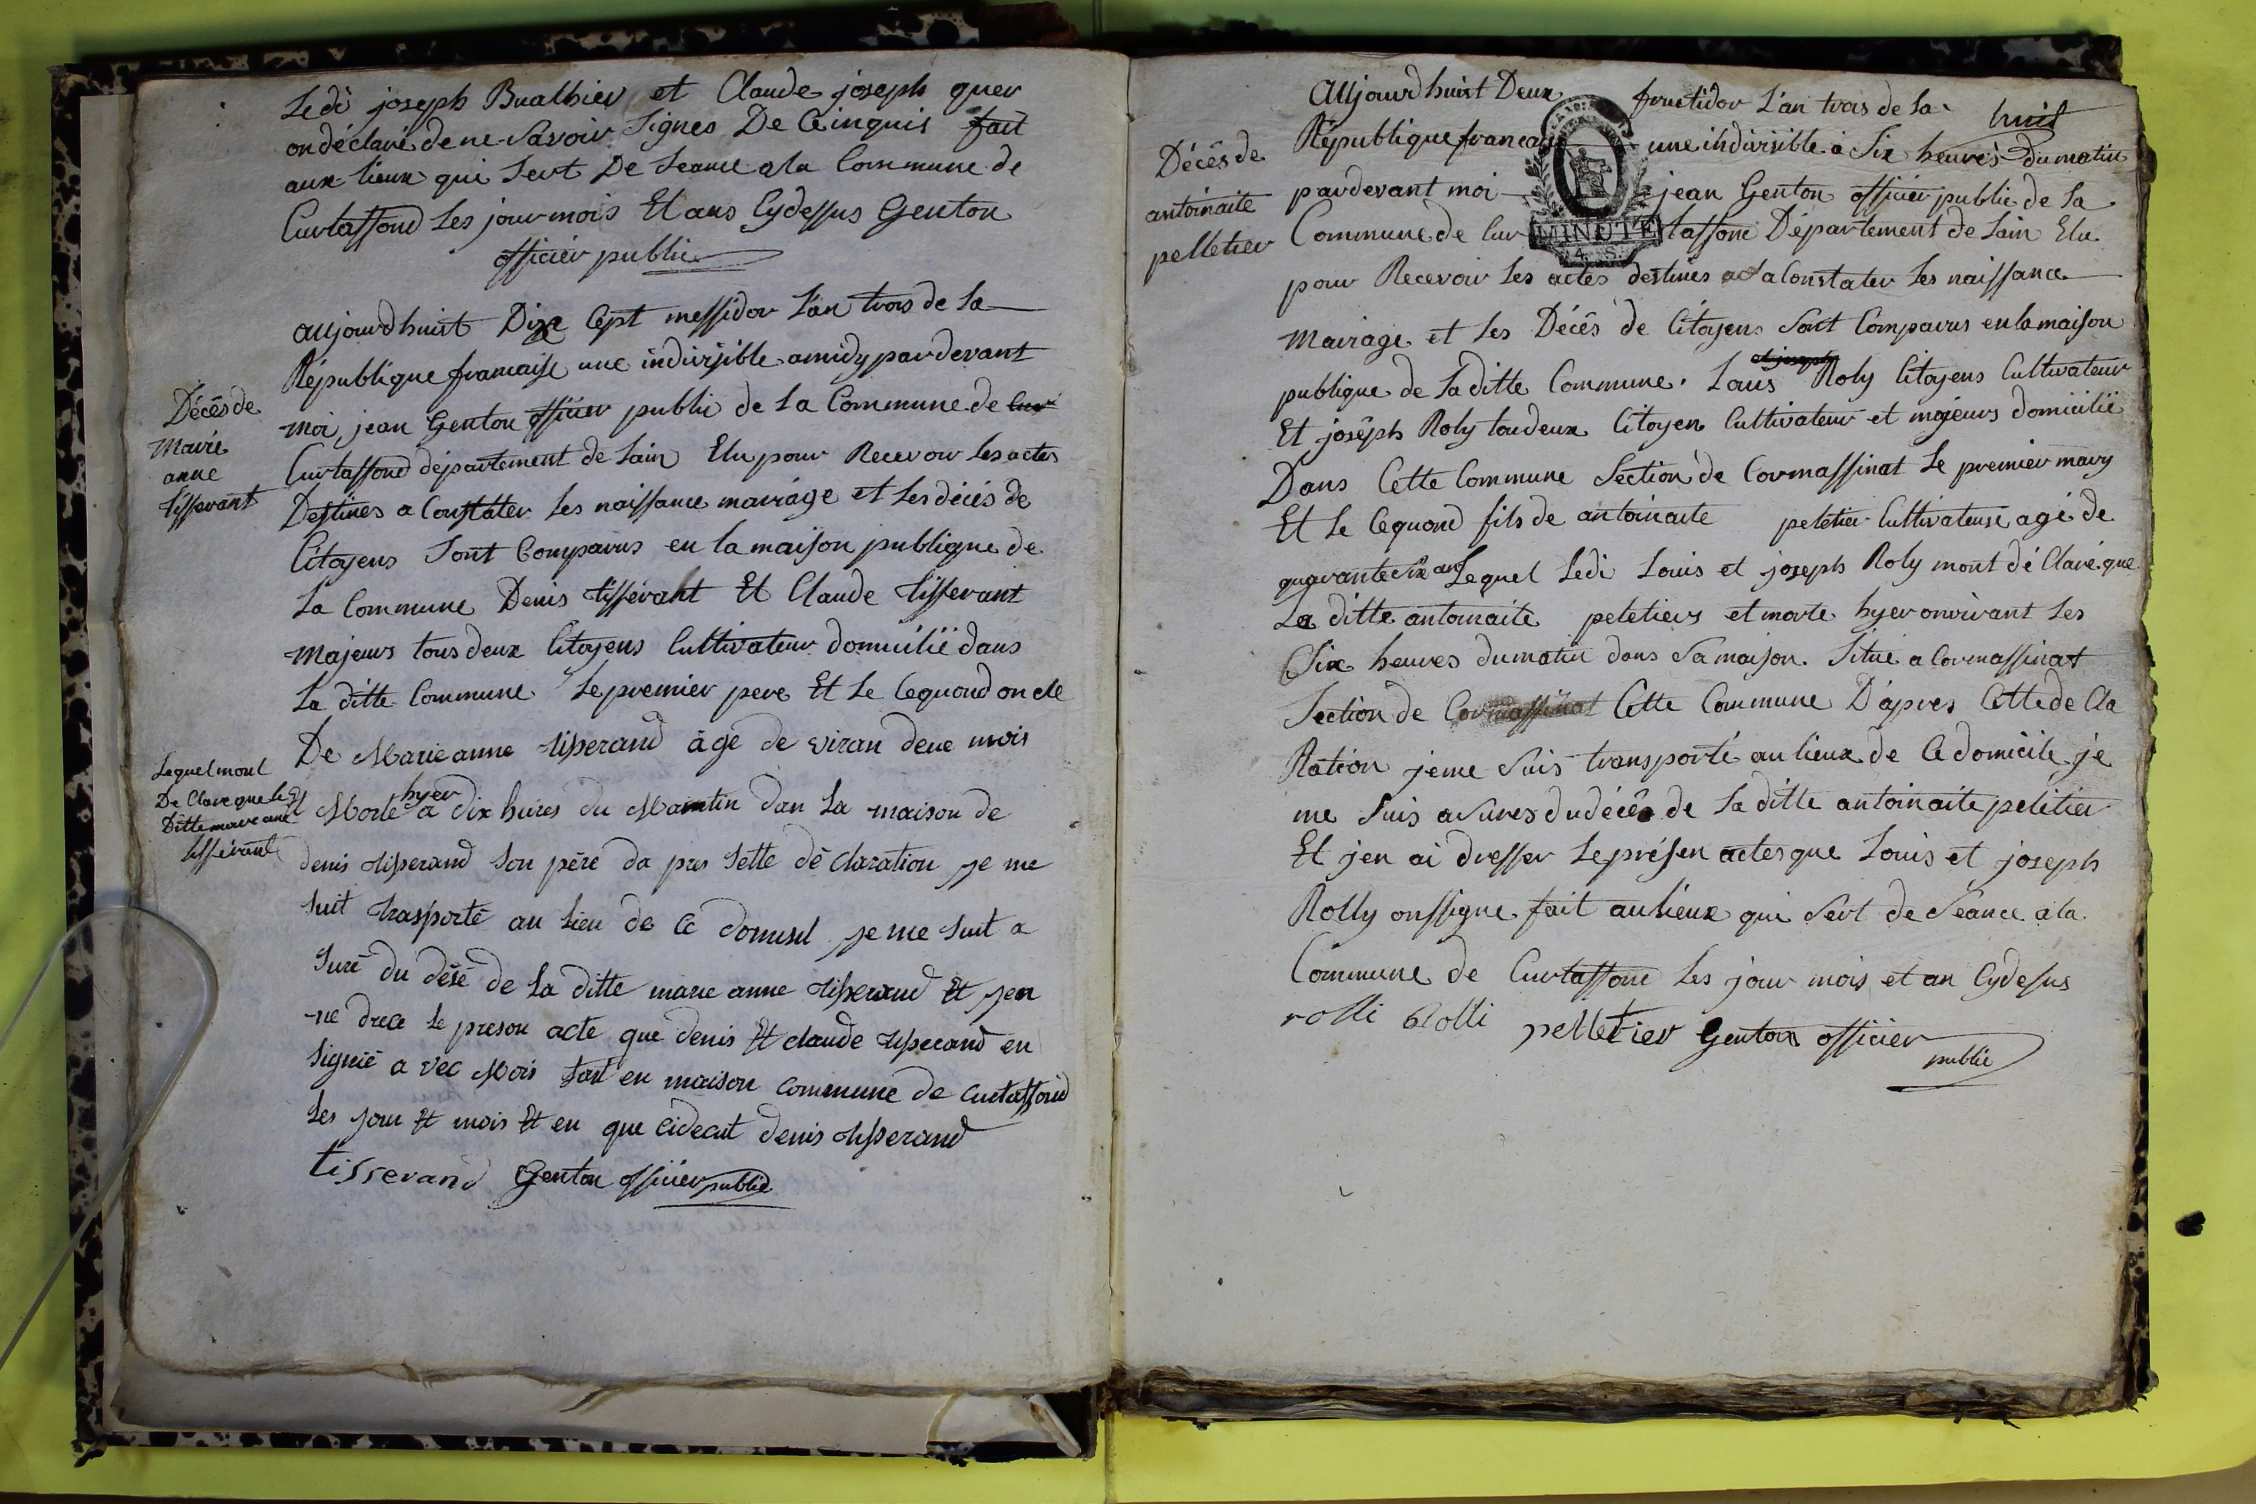 Ledi joseph Bualhier et Claude joseph quer
on déclaré de ne savoir signes De Ce inquis fait
aux lieux qui sert De seance a la Commune de
Curtaffond les jour mois Et ans Cydessus Genton
officier public
Décês de
Marie
anne
tisserant
aujourdhuit Dixe Cept messidor L'an trois de la
République francaise une indivisible a midy par devant
moi jean Genton officier public de la Commune de Cur
Curtaffond département de Lain Elu pour Recevoir les actes
Destines a Constater les naissance mairage et les décés de
Citoyens Sont Comparus en la maison publique de
la Commune Denis tisserant Et Claude tisserant
majeurs tous deux Citoyens Cultivateur domicilié dans
la ditte Commune le premier pere Et le Cequond on cle
De Marie anne tisserand âge de viran deue mois
Lequel mont
De Clare que le
Ditte marie anne
tisserant
et Morte hyer a dix hures du Maintin dan la maison de
denis tisserand son père da pres sette dé claration je me
suit trasporté au lieu de Ce domisil je me suit a
suré du désé de la ditte marie anne tisserand Et jen
ne drece le preson acte que denis Et claude tisserand en
signié a vec Mois fait en maison commune de curtaffond
les jour Et mois Et en que cidecut denis tisserand
tisserand Genton officier public
Décês de
antoinaite
pelletier
aujourdhuit Deux fructidor L'an trois de la huit
République francaise une indivisible a Six heures du matin
par devant moi jean Genton officier public de la
MINUTE
4. S.
Commune de Cur taffond Département de Lain Elu
pour Recevoir les actes destines a Constater les naissance
mairage et les Décês de Citoyens Sont Comparus en la maison
publique de la ditte Commune. Louis et joseph Roly Citoyens Cultivateur
Et joseph Roly toudeux Citoyen Cultivateur et majeurs domicilié
Dans Cette Commune Section de Cormassinat le premier mary
Et le Cequond fils de antoinaite peletier Cultivateuse agé de
quarante six ans Lequel Ledi Louis et joseph Roly mont dé Claré que
La ditte antoinaite peletiers et morte hyer onvirant les
Six heures du matin dans Sa maison. Situé a Cormassinat
Section de Cormassinat Cette Commune D'apres Cette de Cla
Ration je me Suis transporté au lieux de Ce domicile je
me Suis asures du décês de la ditte antoinaite peletier
Et jen ai dresser le présen actes que Louis et joseph
Rolly on ssigne fait au lieux qui Sert de Séance a la
Commune de Curtaffond les jour mois et an Cydesus
rolli Rolli pelletier Genton officier
public